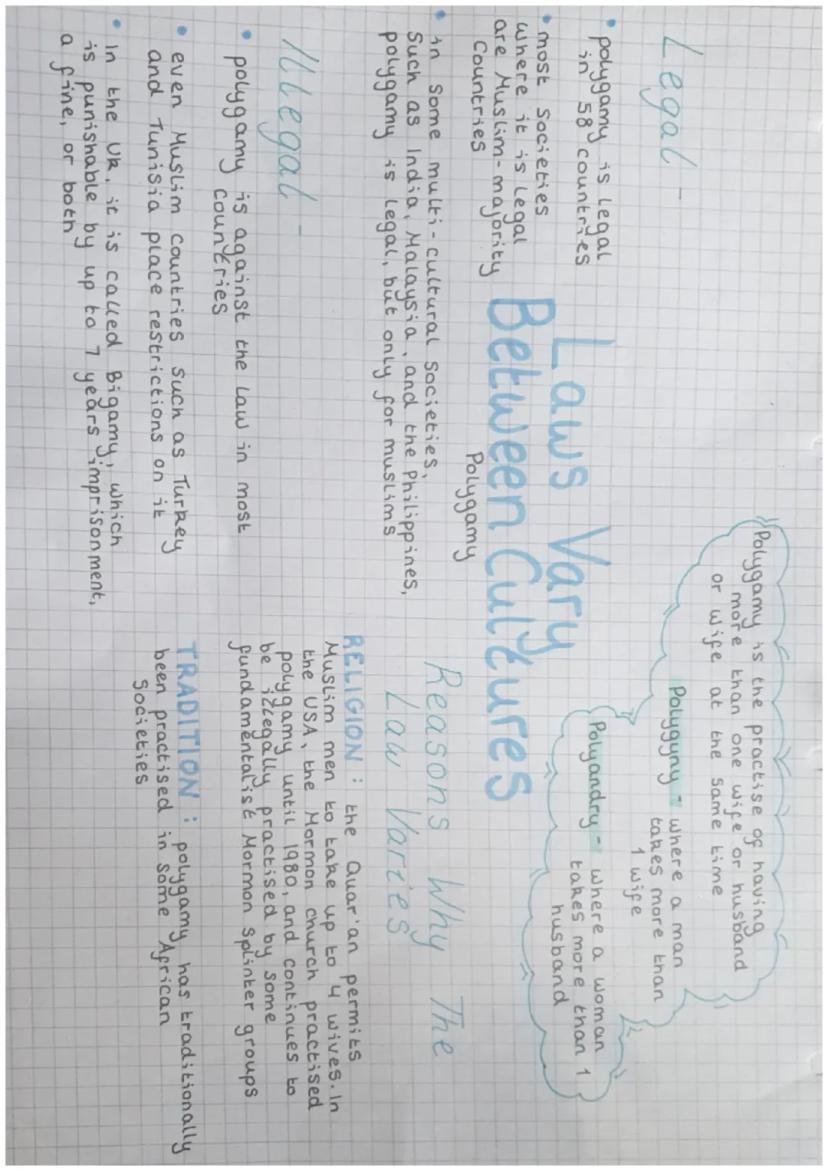 Legal -
• polygamy is legal
in 58 countries
• most societies
where it is legal
are Muslim-majority
Countries
• in some multi-cultural societies,
such as India, Malaysia, and the Philippines,
polygamy is legal, but only for muslims
Illegal -
• polygamy is against the law in most
countries
• even Muslim countries such as Turkey
and Tunisia place restrictions on it
• In the UK, it is called Bigamy, which
is punishable by up to 7 years imprisonment,
a fine, or both
Laws Vary
Between Cultures
Polygamy
Polygamy is the practise of having
more than one wife or husband
or wife at the same time
Polygyny - where a man
takes more than
1 wife
Polyandry - where a woman
takes more than 1
husband
Reasons Why The
Law Varies
RELIGION : the Quar'an permits
Muslim men to take up to 4 wives. In
the USA, the Mormon church practised
polygamy until 1980, and continues to
be illegally practised by some
fundamentalist Mormon splinter groups
TRADITION : polygamy has traditionally
been practised in some African
Societies